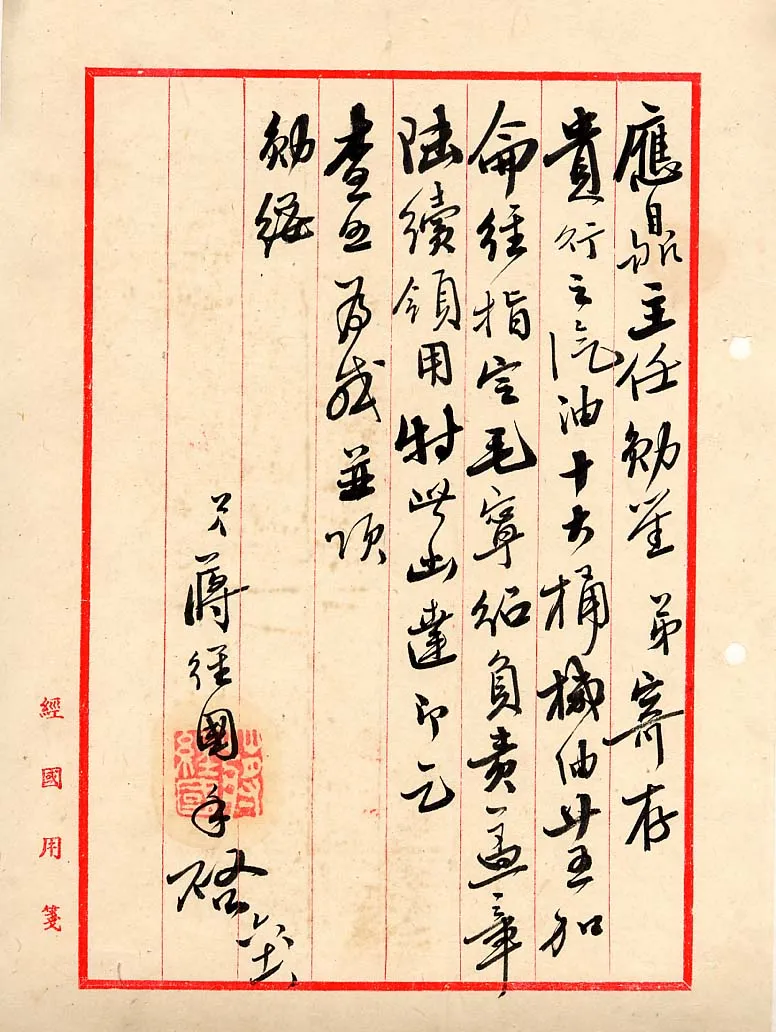 應鼎主任勛鑒 弟寄存
貴行之汽油十大桶機油廿五加
侖經指定毛寧紹負責蓋章
陸續領用特此函達即乞
查照為感並頌
勛綏
弟蔣經國手啓
蔣經國
經國用箋